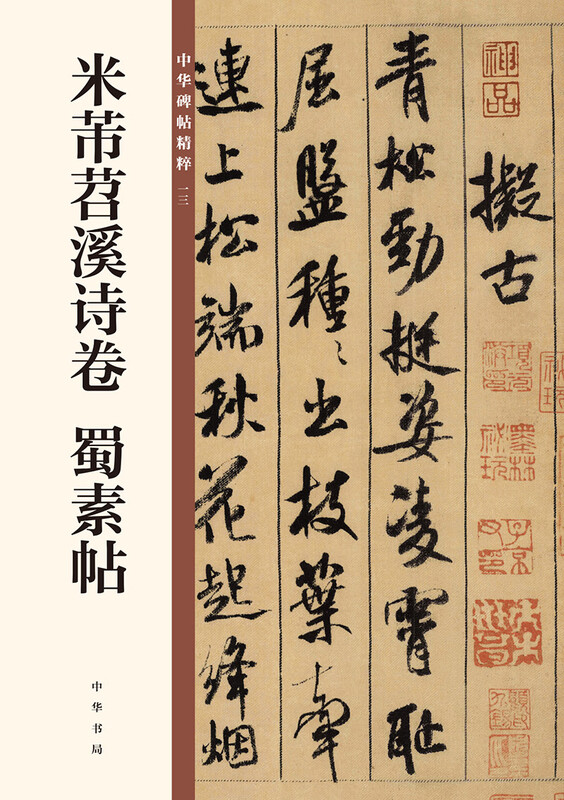 米芾苕溪诗卷 蜀素帖
中华书局
中华碑帖精粹 二三
神品
擬古
青松勁挺姿凌霄耻
屈盤種〻出枝葉牽
連上松端秋花起絳烟
墨林秘玩